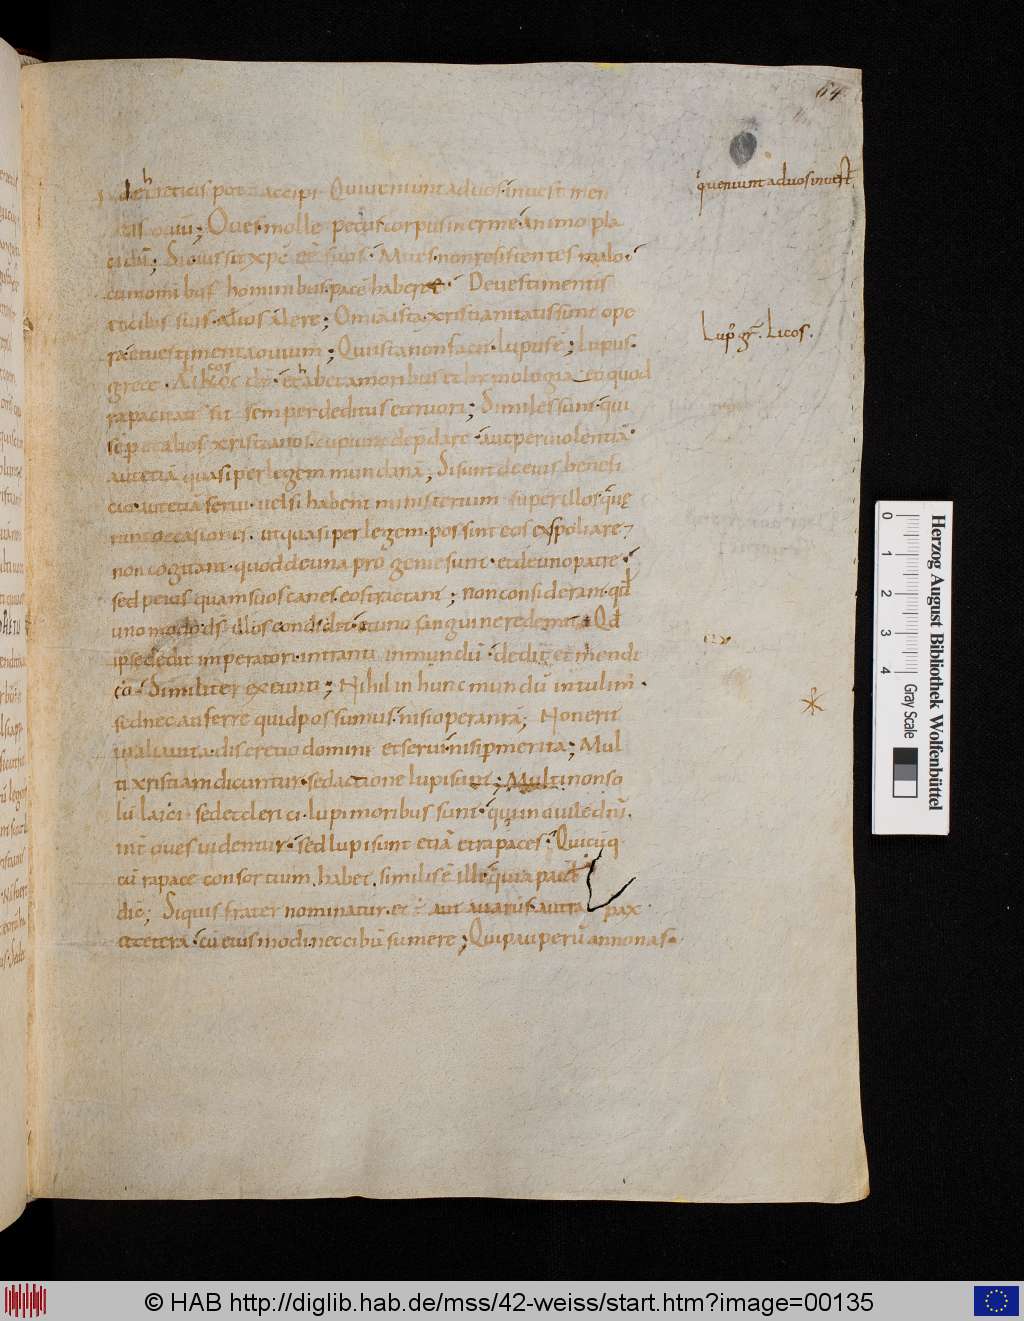 64
de hereticis pot accipi. Qui ueniunt ad uos in uestimen
tis ouiu; Oues molle pecus corpus inerme animo pla
cidu; Si quis sit xpe ee suos. Mites non resistentes malo
cum omnibus hominibus pace habere De uestimentis
suis alios alere; Omia ista xristianitatis sunt ope
ra et uestimenta ouium; Qui ista non facit lupus e; Lupus
grece Λicos dr et habet a moribus ethimologia eo quod
rapacitati sit semper deditus et cruori; Similes sunt qui
sepe et alios xristianos cupiunt depdare aut per uiolentia
aut etia quasi per legem mundana; Si sunt de eius benefi
cio aut etia serui uel si habent ministerium super illos que
runt occasiones ut quasi per legem possint eos exspoliare
non cogitant quod de una progenie sunt et de uno patre
sed peius quam suos canes eos tractant; non considerant qd
uno modo ds illos condidit et uno sanguine redemit Qd
ipse dedit imperatori intranti in mundu dedit et mendi
co Similiter exeunti; Nihil in hunc mundu intulim
sed nec auferre quid possumus nisi opera nra; Non erit
in alia uita discretio domini et serui nisi p merita; Mul
ti xristiani dicuntur sed actione lupi sunt; Multi non so
lu laici sed et clerici lupi moribus sunt qui in
int oues uidentur sed lupi sunt etia et rapaces Quicuq
cu rapace consortium habet similis e illi quia
dic; Si quis frater nominatur et e aut auarus aut ra pax
et cetera cu eiusmodi nec cibu sumere; Qui pauperu annonas
q ueniunt ad uos in uest
Lup gr Licos.
0 1 2 3 4
Gray Scale
Herzog August Bibliothek Wolfenbüttel
© HAB http://diglib.hab.de/mss/42-weiss/start.htm?image=00135